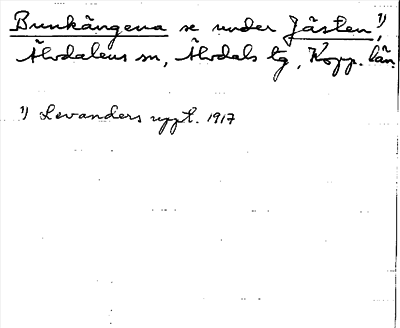 Bunkängena se under Jästen¹⁾,
Älvdalens sn, Älvdals tg, Kopp. län.
¹⁾ Levanders uppt. 1917